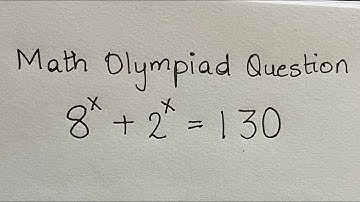 Math Olympiad Question
8^x + 2^x = 130